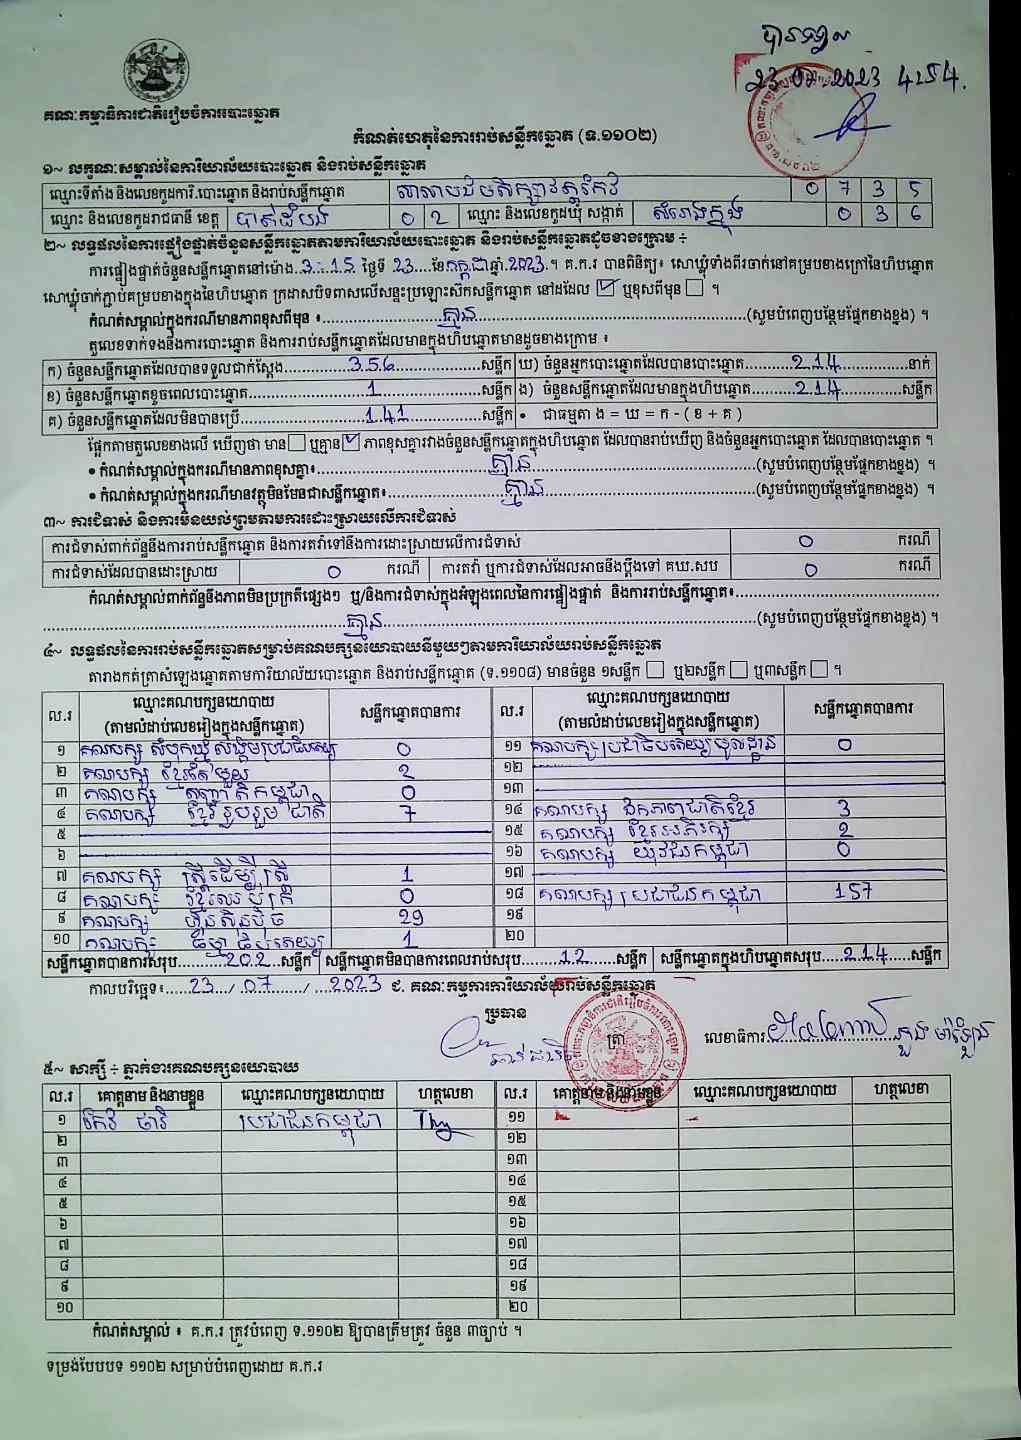 បានទទួល
23 07 2023 4:54.
គណៈកម្មាធិការជាតិរៀបចំការបោះឆ្នោត
កំណត់ហេតុនៃការរាប់សន្លឹកឆ្នោត (ទ.១១០២)
១~ លក្ខណៈសម្គាល់នៃការិយាល័យបោះឆ្នោត និងរាប់សន្លឹកឆ្នោត
ឈ្មោះទីតាំង និងលេខកូដការិ.បោះឆ្នោត និងរាប់សន្លឹកឆ្នោត 0 7 3 5
ឈ្មោះ និងលេខកូដរាជធានី ខេត្ត បាត់ដំបង 0 2 ឈ្មោះ និងលេខកូដឃុំ សង្កាត់ 0 3 6
២~ លទ្ធផលនៃការផ្ទៀងផ្ទាត់ចំនួនសន្លឹកឆ្នោតតាមការិយាល័យបោះឆ្នោត និងរាប់សន្លឹកឆ្នោតដូចខាងក្រោម ÷
ការផ្ទៀងផ្ទាត់ចំនួនសន្លឹកឆ្នោតនៅម៉ោង 3:15 ថ្ងៃទី 23 ខែកក្កដាឆ្នាំ 2023 ។ គ.ក.រ បានពិនិត្យ៖ សោឃ្លុំទាំងពីរចាក់នៅគម្របខាងក្រៅនៃហិបឆ្នោត
សោឃ្លុំចាក់ភ្ជាប់គម្របខាងក្នុងនៃហិបឆ្នោត ក្រដាសបិទពាសលើសន្ទះប្រឡោះសឹកសន្លឹកឆ្នោត នៅដដែល ☑ ឬខុសពីមុន ☐ ។
កំណត់សម្គាល់ក្នុងករណីមានភាពខុសពីមុន ៖ គ្មាន (សូមបំពេញបន្ថែមផ្នែកខាងខ្នង) ។
តួលេខទាក់ទងនឹងការបោះឆ្នោត និងការរាប់សន្លឹកឆ្នោតដែលមានក្នុងហិបឆ្នោតមានដូចខាងក្រោម ៖
ក) ចំនួនសន្លឹកឆ្នោតដែលបានទទួលជាក់ស្តែង 356 សន្លឹក ឃ) ចំនួនអ្នកបោះឆ្នោតដែលបានបោះឆ្នោត 214 នាក់
ខ) ចំនួនសន្លឹកឆ្នោតខូចពេលបោះឆ្នោត 1 សន្លឹក ង) ចំនួនសន្លឹកឆ្នោតដែលមានក្នុងហិបឆ្នោត 214 សន្លឹក
គ) ចំនួនសន្លឹកឆ្នោតដែលមិនបានប្រើ 141 សន្លឹក • ជាធម្មតា ង = ឃ = ក - ( ខ + គ )
ផ្អែកតាមតួលេខខាងលើ ឃើញថា មាន ☐ ឬគ្មាន ☑ ភាពខុសគ្នារវាងចំនួនសន្លឹកឆ្នោតក្នុងហិបឆ្នោត ដែលបានរាប់ឃើញ និងចំនួនអ្នកបោះឆ្នោត ដែលបានបោះឆ្នោត ។
• កំណត់សម្គាល់ក្នុងករណីមានភាពខុសគ្នា៖ គ្មាន (សូមបំពេញបន្ថែមផ្នែកខាងខ្នង) ។
• កំណត់សម្គាល់ក្នុងករណីមានវត្ថុមិនមែនជាសន្លឹកឆ្នោត៖ គ្មាន (សូមបំពេញបន្ថែមផ្នែកខាងខ្នង) ។
៣~ ការជំទាស់ និងការមិនយល់ព្រមតាមការដោះស្រាយលើការជំទាស់
ការជំទាស់ពាក់ព័ន្ធនឹងការរាប់សន្លឹកឆ្នោត និងការតវ៉ាទៅនឹងការដោះស្រាយលើការជំទាស់ 0 ករណី
ការជំទាស់ដែលបានដោះស្រាយ 0 ករណី ការតវ៉ា ឬការជំទាស់ដែលអាចនឹងប្តឹងទៅ គឃ.សប 0 ករណី
កំណត់សម្គាល់ពាក់ព័ន្ធនឹងភាពមិនប្រក្រតីផ្សេងៗ ឬ/និងការជំទាស់ក្នុងអំឡុងពេលនៃការផ្ទៀងផ្ទាត់ និងការរាប់សន្លឹកឆ្នោត៖
គ្មាន (សូមបំពេញបន្ថែមផ្នែកខាងខ្នង) ។
៤~ លទ្ធផលនៃការរាប់សន្លឹកឆ្នោតសម្រាប់គណបក្សនយោបាយនីមួយៗតាមការិយាល័យរាប់សន្លឹកឆ្នោត
តារាងកត់ត្រាសំឡេងឆ្នោតតាមការិយាល័យបោះឆ្នោត និងរាប់សន្លឹកឆ្នោត (ទ.១១០៨) មានចំនួន ១សន្លឹក ☐ ឬ២សន្លឹក ☐ ឬ៣សន្លឹក ☐ ។
ល.រ ឈ្មោះគណបក្សនយោបាយ (តាមលំដាប់លេខរៀងក្នុងសន្លឹកឆ្នោត) សន្លឹកឆ្នោតបានការ ល.រ ឈ្មោះគណបក្សនយោបាយ (តាមលំដាប់លេខរៀងក្នុងសន្លឹកឆ្នោត) សន្លឹកឆ្នោតបានការ
១ គណបក្ស សំបុកឃ្មុំសង្គមប្រជាធិបតេយ្យ 0 ១១ គណបក្សប្រជាធិបតេយ្យមូលដ្ឋាន 0
២ គណបក្ស ខ្មែរតែមួយ 2 ១២
៣ គណបក្ស កម្ពុជា 0 ១៣
៤ គណបក្ស ខ្មែររួបរួមជាតិ 7 ១៤ គណបក្ស ឯកភាពជាតិខ្មែរ 3
៥ ១៥ គណបក្ស ខ្មែរអភិរក្ស 2
៦ ១៦ គណបក្ស យុវជនកម្ពុជា 0
៧ គណបក្ស ស្ត្រីដើម្បីស្ត្រី 1 ១៧
៨ គណបក្ស 0 ១៨ គណបក្ស ប្រជាជនកម្ពុជា 157
៩ គណបក្ស ហ៊្វុនស៊ិនប៉ិច 29 ១៩
១០ គណបក្ស ធម្មាធិបតេយ្យ 1 ២០
សន្លឹកឆ្នោតបានការសរុប 202 សន្លឹក សន្លឹកឆ្នោតមិនបានការពេលរាប់សរុប 12 សន្លឹក សន្លឹកឆ្នោតក្នុងហិបឆ្នោតសរុប 214 សន្លឹក
កាលបរិច្ឆេទ៖ 23 / 07 / 2023 ជ. គណៈកម្មការការិយាល័យរាប់សន្លឹកឆ្នោត
ប្រធាន
ត្រា លេខាធិការ
៥~ សាក្សី ÷ ភ្នាក់ងារគណបក្សនយោបាយ
ល.រ គោត្តនាម និងនាមខ្លួន ឈ្មោះគណបក្សនយោបាយ ហត្ថលេខា ល.រ គោត្តនាម និងនាមខ្លួន ឈ្មោះគណបក្សនយោបាយ ហត្ថលេខា
១ កែវ ថាវី ប្រជាជនកម្ពុជា ១១
២ ១២
៣ ១៣
៤ ១៤
៥ ១៥
៦ ១៦
៧ ១៧
៨ ១៨
៩ ១៩
១០ ២០
កំណត់សម្គាល់ ៖ គ.ក.រ ត្រូវបំពេញ ទ.១១០២ ឱ្យបានត្រឹមត្រូវ ចំនួន ៣ច្បាប់ ។
ទម្រង់បែបបទ ១១០២ សម្រាប់បំពេញដោយ គ.ក.រ